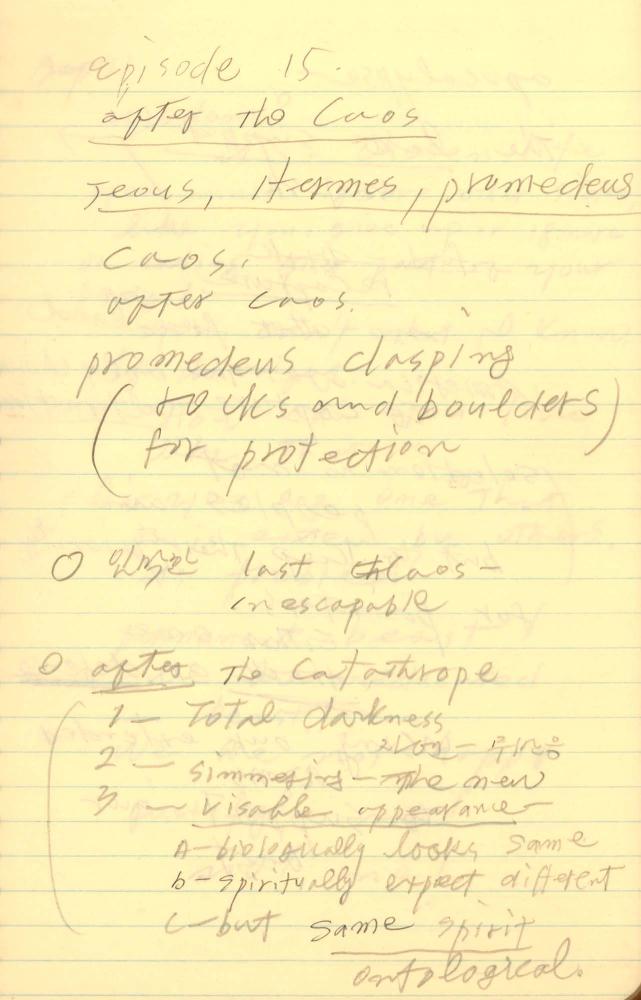 episode 15.
after the Caos
Jeous, Hermes, promedeus
Caos.
after caos.
promedeus clasping
(rocks and boulders)
for protection
O last Chaos-
inescapable
O after the Catathrope
1- Total darkness
2- simmering - the new
3- visable appearance-
A-biologically looks same
b-spiritually expect different
C-but same spirit
ontological.